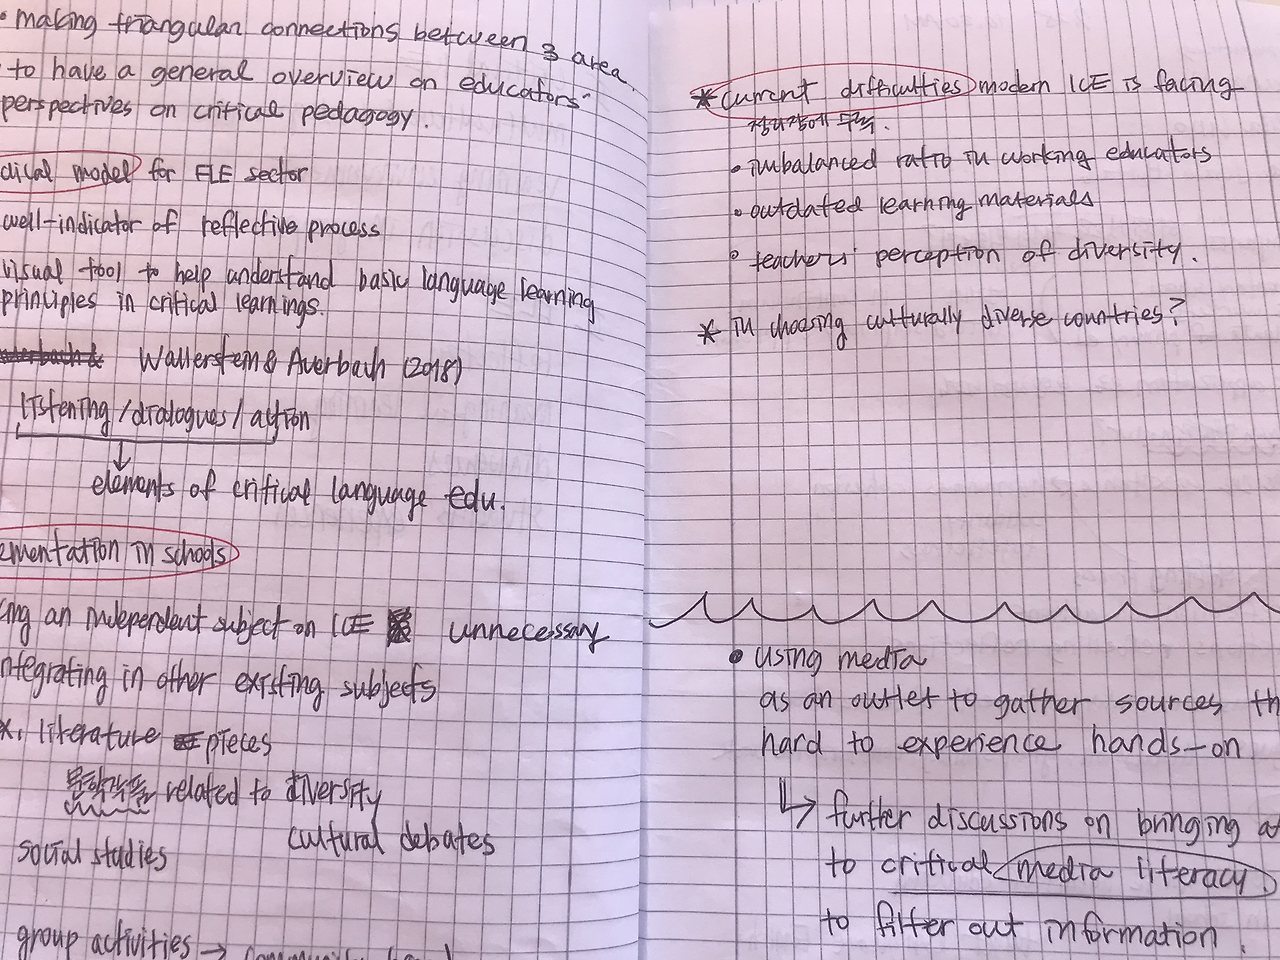 • making triangular connections between 3 area,
to have a general overview on educators'
perspectives on critical pedagogy.
dical model for ELE sector
well-indicator of reflective process
visual tool to help understand basic language learning
principles in critical learnings.
Wallerstein & Auerbach (2018)
listening/dialogues/action
elements of critical language edu.
ementation in schools
ing an independent subject on ICE unnecessary
ntegrating in other existing subjects
x. literature pieces
문학작품 related to diversity
cultural debates
social studies
group activities →
* current difficulties modern ICE is facing
• imbalanced ratio in working educators
• outdated learning materials
• teachers' perception of diversity.
* in choosing culturally diverse countries?
• using media
as an outlet to gather sources th
hard to experience hands-on
↳ further discussions on bringing
to critical media literacy
to filter out information.